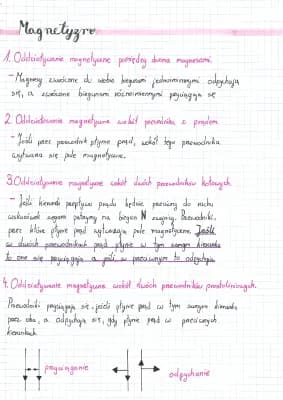 Magnetyzm
1. Oddziaływanie magnetyczne pomiędzy dwoma magnesami.
- Magnesy zwrócone do siebie biegunami jednoimiennymi odpychają
się, a zwrócone biegunami różnoimiennymi przyciągają się
2. Oddziaływanie magnetyczne wokół przewodnika z prądem.
- Jeśli przez przewodnik płynie prąd, wokół tego przewodnika
wytwarza się pole magnetyczne.
3. Oddziaływanie magnetyczne wokół dwóch przewodników kołowych.
- Jeśli kierunek przepływu prądu będzie przeciwny do ruchu
wskazówek zegara patrzymy na biegun N zwojnicy. Przewodniki,
przez które płynie prąd wytwarzają pole magnetyczne. Jeśli
w dwóch przewodnikach prąd płynie w tym samym kierunku
to one się przyciągają a jeśli w przeciwnym to odpychają.
4. Oddziaływanie magnetyczne wokół dwóch przewodników prostoliniowych.
Przewodniki przyciągają się, jeśli płynie prąd w tym samym kierunku
przez oba, a odpychają się, gdy płynie prąd w przeciwnych
kierunkach.
przyciąganie
odpychanie